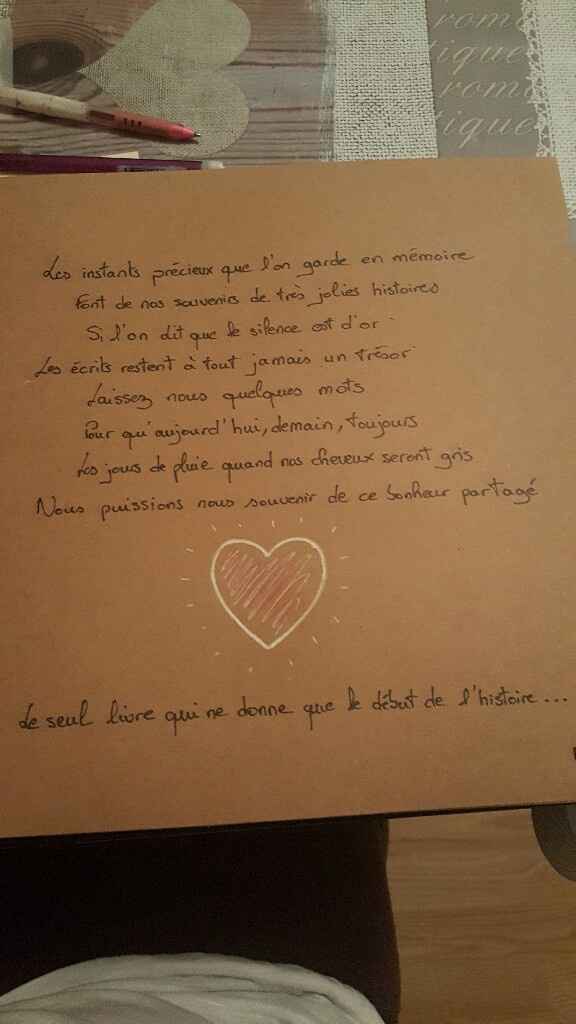 roma
tique
roma
tique
Les instants précieux que l'on garde en mémoire
Font de nos souvenirs de très jolies histoires
Si l'on dit que le silence est d'or
Les écrits restent à tout jamais un trésor
Laissez nous quelques mots
Pour qu'aujourd'hui, demain, toujours
Les jours de pluie quand nos cheveux seront gris
Nous puissions nous souvenir de ce bonheur partagé
Le seul livre qui ne donne que le début de l'histoire...